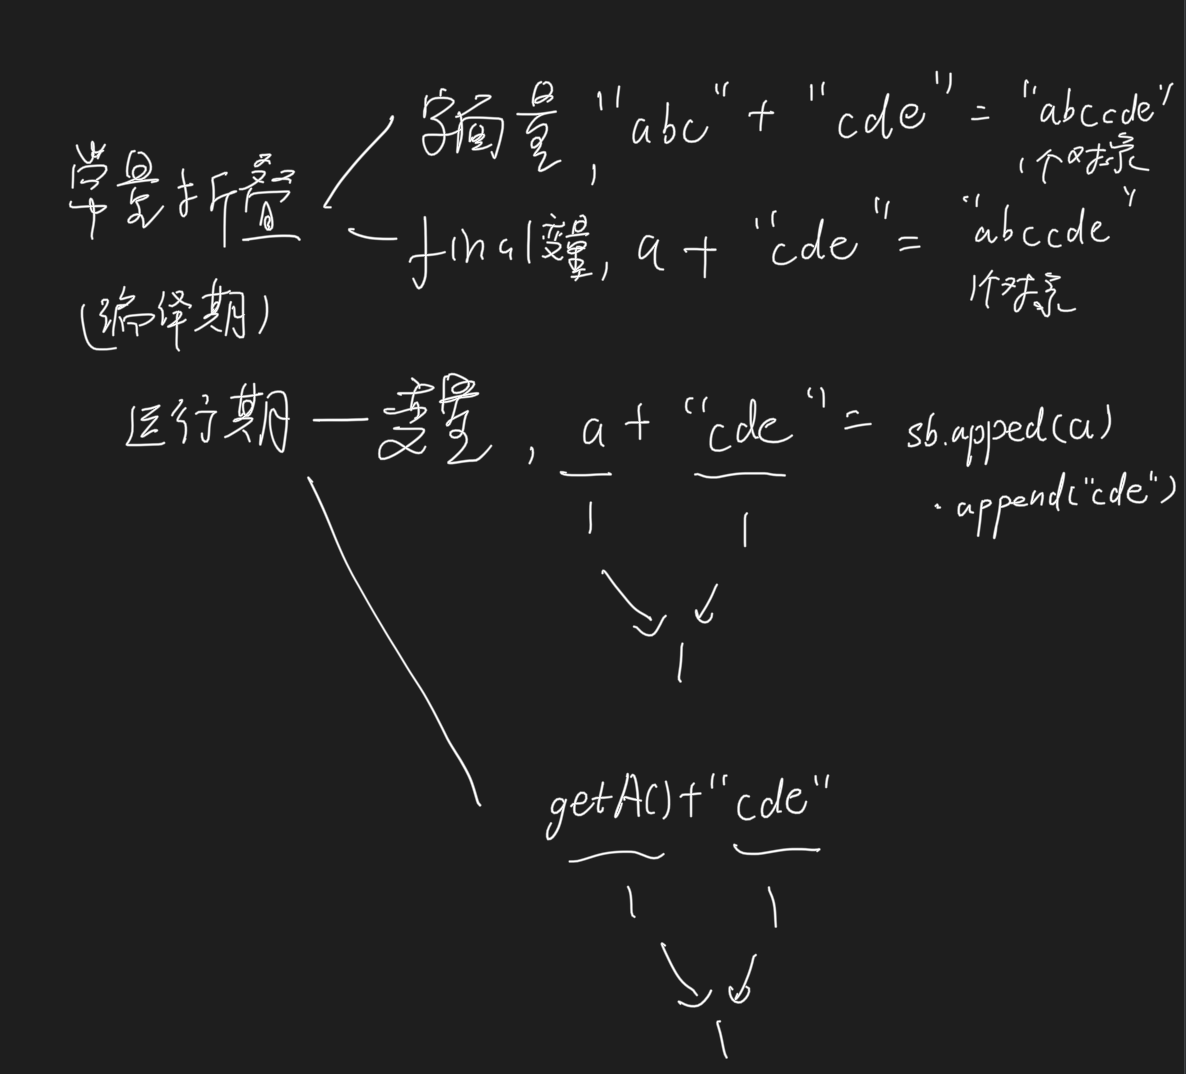 常量折叠
(编译期)
字面量, "abc" + "cde" = "abccde"
1个对象
final变量, a + "cde" = "abccde"
1个对象
运行期 — 变量, a + "cde" = sb.apped(a)
.append("cde")
1 1
1
getA()+"cde"
1 1
1